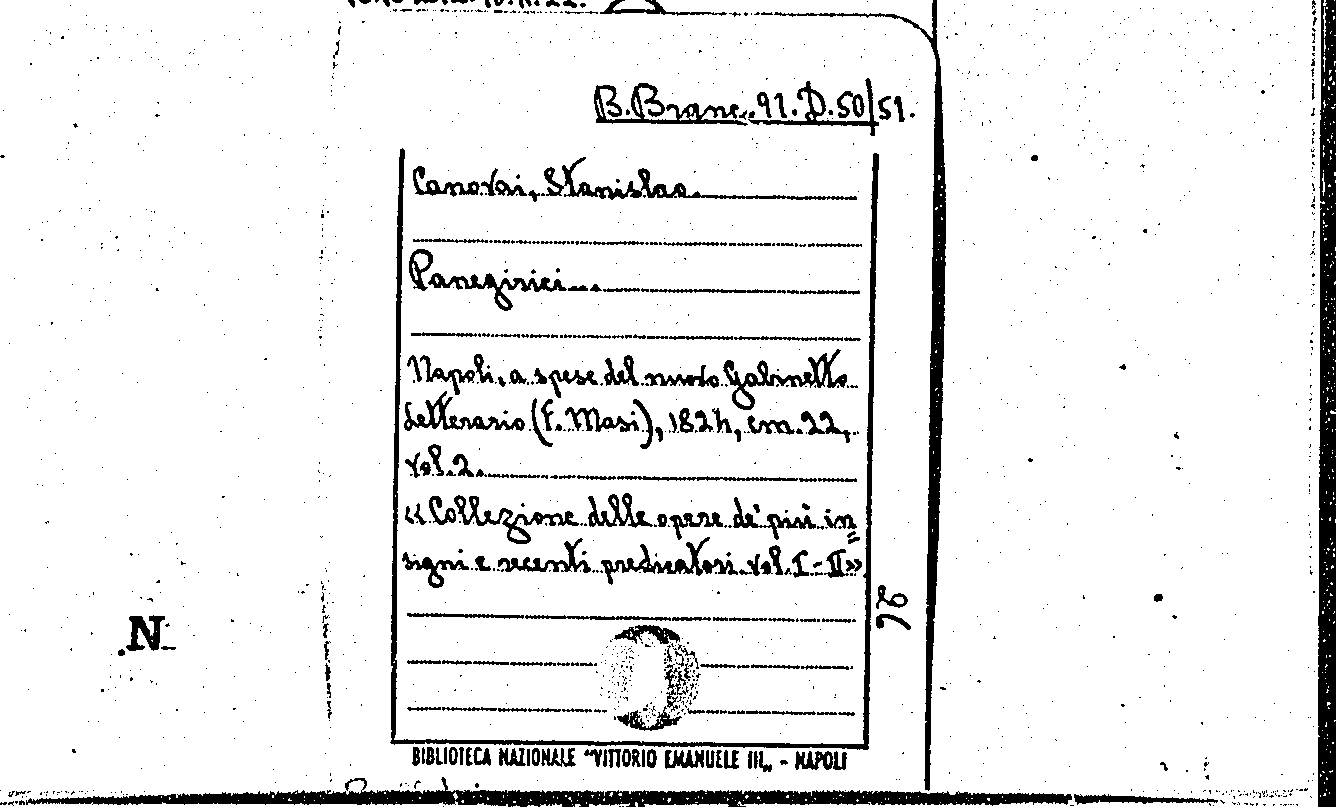 B.Branc. 91.D.50/51.
Canovai, Stanislao.
Panegirici...
Napoli, a spese del nuovo Gabinetto
Letterario (F. Masi), 1824, cm.22,
vol.2.
«Collezione delle opere de' più in=
signi e recenti predicatori. vol.I-II»
26
N
BIBLIOTECA NAZIONALE "VITTORIO EMANUELE III„ - NAPOLI